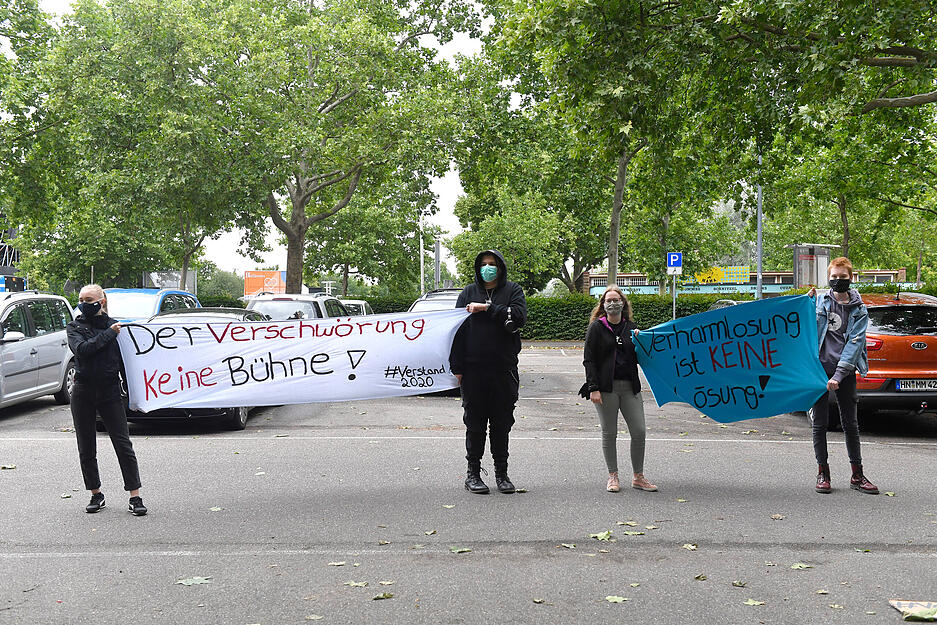 Der Verschwörung
Keine Bühne!
#Verstand
2020
Verharmlosung
ist KEINE
ösung!
P
HN MM 42